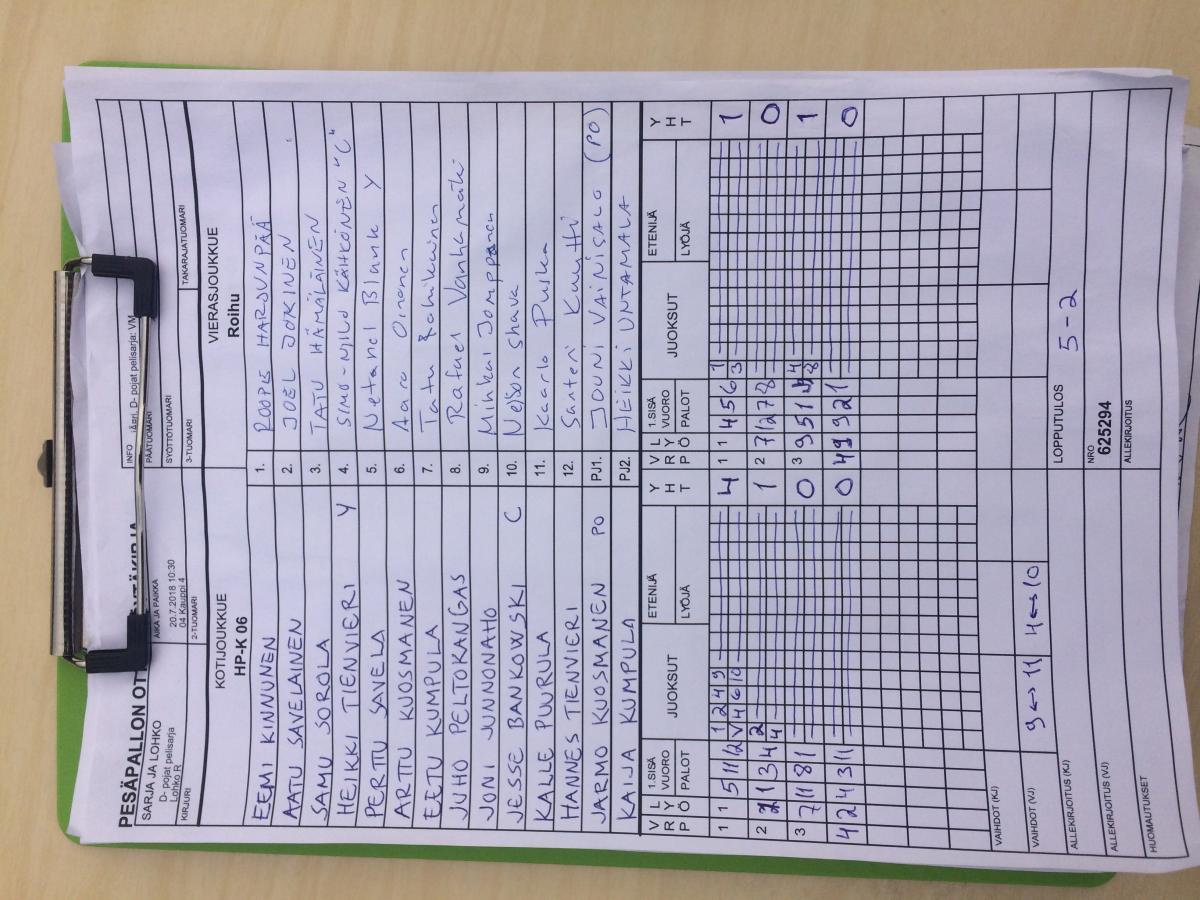 PESÄPALLON OT
SARJA JA LOHKO
D- pojat pelisarja
Lohko R
KIRJURI
AIKA JA PAIKKA
20.7.2018 10:30
04 Kauppi 4
2-TUOMARI
INFO
D- pojat pelisarja: VM
PÄÄTUOMARI
SYÖTTÖTUOMARI
3-TUOMARI
TAKARAJATUOMARI
KOTIJOUKKUE
HP-K 06
VIERASJOUKKUE
Roihu
EEMI KINNUNEN 1. ROOPE HARJUNPÄÄ
AATU SAVELAINEN 2. JOEL JOKINEN
SAMU SOROLA 3. TATU HÄMÄLÄINEN
HEIKKI TIENVIERI Y 4. SIMO-NIILO KÄHKÖNEN "C"
PERTTU SAVELA 5. Netanel Blank Y
ARTTU KUOSMANEN 6. Aaro Oinonen
EETU KUMPULA 7. Tatu
JUHO PELTOKANGAS 8. Rafael Vanhamäki
JONI JUNNONAHO 9. Mihkal Jomppanen
JESSE BANKOWSKI C 10. Nelson Shava
KALLE PUURULA 11. Kaarlo Puska
HANNES TIENVIERI 12. Santeri Kautti
JARMO KUOSMANEN PO PJ1. JOUNI VAINISALO (PO)
KAIJA KUMPULA PJ2. HEIKKI UNTAMALA
VRP LYÖ 1.SISÄ VUORO PALOT JUOKSUT ETENIJÄ LYÖJÄ YHT VRP LYÖ 1.SISÄ VUORO PALOT JUOKSUT ETENIJÄ LYÖJÄ YHT
1 1 5 11 12 1 2 4 9 V 4 6 10 4 1 1 4 5 6 1 3 1
2 2 1 3 4 2 4 1 2 7 12 7 8 0
3 7 11 8 1 0 3 9 5 1 4 8 1
4 2 4 3 11 0 4 9 9 2 1 0
VAIHDOT (KJ)
VAIHDOT (VJ) 9 ↔ 11 4 ↔ 10
ALLEKIRJOITUS (KJ)
LOPPUTULOS 5-2
ALLEKIRJOITUS (VJ)
NRO
625294
HUOMAUTUKSET
ALLEKIRJOITUS